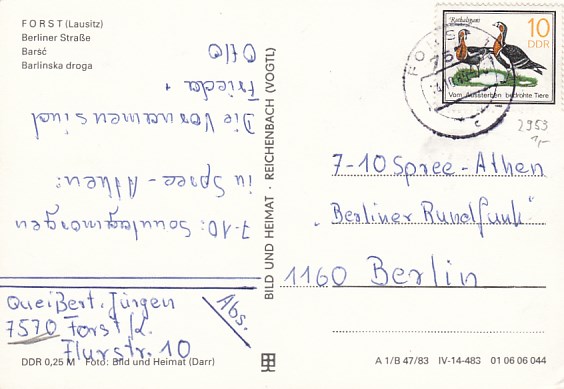 FORST (Lausitz)
Berliner Straße
Baršć
Barlinska droga
7-10: Sonntagmorgen
in Spree-Athen:
Die Vornamen sind
Frieda +
Otto
Queißert, Jürgen
7570 Forst/L.
Flurstr. 10
Abs.
DDR 0,25 M Foto: Bild und Heimat (Darr)
BILD UND HEIMAT · REICHENBACH (VOGTL)
Rothalsgans
10
DDR
Vom Aussterben bedrohte Tiere
FORST
c
2953
1,-
7-10 Spree-Athen
„Berliner Rundfunk"
1160 Berlin
A 1/B 47/83 IV-14-483 01 06 06 044